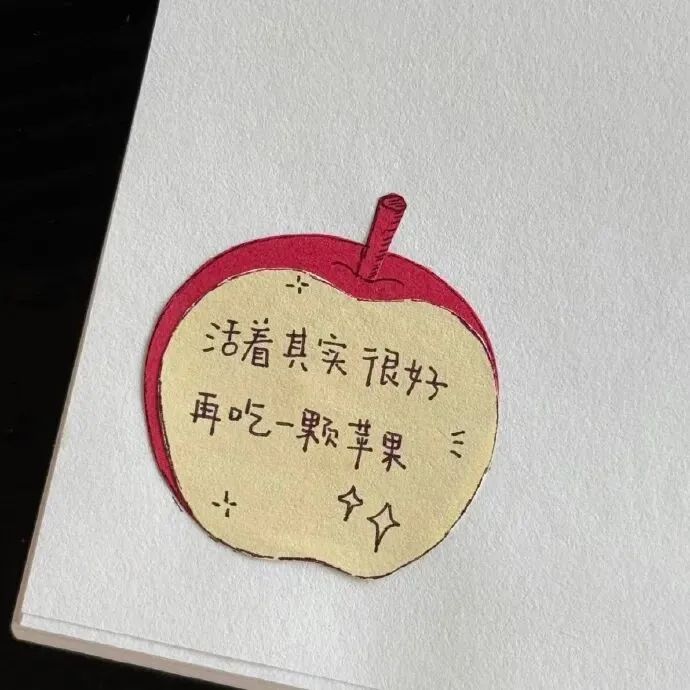 活着其实很好
再吃一颗苹果